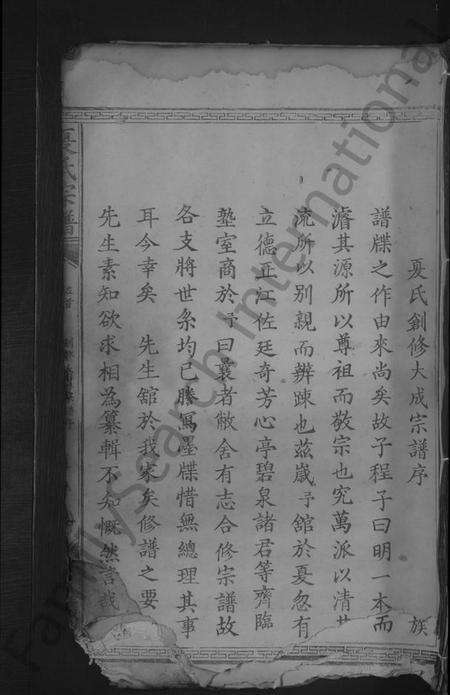 夏氏創修大成宗譜序
族譜牒之作由來尚矣故子程子曰明一本而
濬其源所以尊祖而敬宗也究萬派以清其
流所以別親而辨踈也茲嵗予舘於夏忽有
立德正江佐廷奇芳心亭碧泉諸君等齊臨
塾室商於予曰曩者敝舍有志合修宗譜故
各支將世系均已謄寫墨牒惜無總理其事
耳今幸矣 先生舘於我宗矣修譜之要
先生素知欲求相為纂輯不知慨然言哉
夏氏宗譜
FamilySearch International